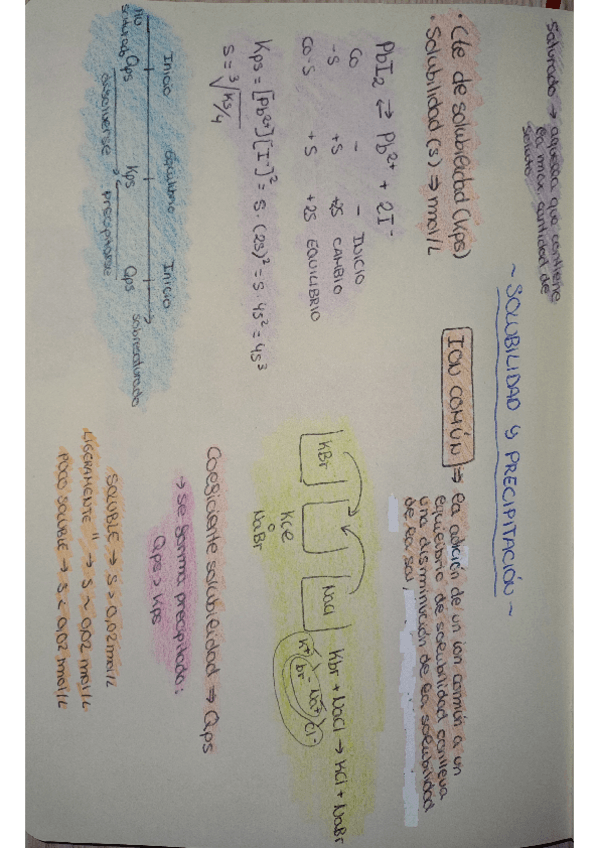 saturado → aquella que contiene
la max. cantidad de
soluto
~ SOLUBILIDAD Y PRECIPITACIÓN ~
· Cte de solubilidad (Kps)
· Solubilidad (s) ⇒ mol/L
PbI2 ⇄ Pb2+ + 2I-
Co - - INICIO
-S +S +2S CAMBIO
Co-S +S +2S EQUILIBRIO
Kps = [Pb2+][I-]² = S · (2S)² = S · 4S² = 4S³
S = ³√Ks/4
Inicio Equilibrio Inicio
no saturado Qps Kps Qps sobresaturado
disolverse precipitarse
ION COMÚN ⇒ la adición de un ion común a un
equilibrio de solubilidad conlleva
una disminución de la solubilidad
de la sal
KBr NaCl
KCl
o
NaBr
KBr + NaCl → KCl + NaBr
K+ Br- Na+ Cl-
Coeficiente solubilidad ⇒ Qps
→ se forma precipitado:
Qps > Kps
SOLUBLE → S > 0,02 mol/L
LIGERAMENTE " → S ~ 0,02 mol/L
POCO SOLUBLE → S < 0,02 mol/L